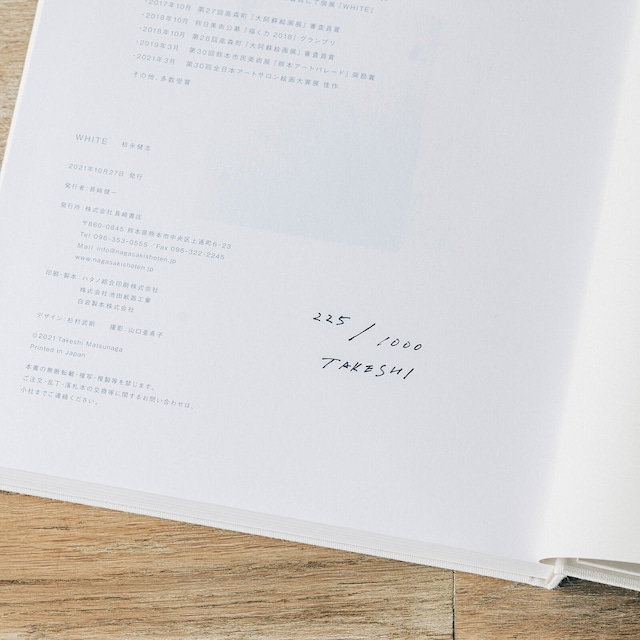 ・2017年10月 第27回高森町「大阿蘇絵画展」審査員賞
・2018年10月 熊日美術公募「描く力 2018」グランプリ
・2018年10月 第28回高森町「大阿蘇絵画展」審査員賞
・2019年3月 第30回熊本市民美術展「熊本アートパレード」奨励賞
・2021年3月 第30回全日本アートサロン絵画大賞展 佳作
その他、多数受賞
WHITE 松永健志
2021年10月27日 発行
発行者：長﨑健一
発行所：株式会社長﨑書店
〒860-0845 熊本県熊本市中央区上通町6-23
Tel 096-353-0555 / Fax 096-322-2245
Mail info@nagasakishoten.jp
www.nagasakishoten.jp
印刷・製本：ハタノ総合印刷株式会社
株式会社 池田紙器工業
白岩製本株式会社
デザイン：杉村武則 撮影：山口亜希子
©2021 Takeshi Matsunaga
Printed in Japan
本書の無断転載・複写・複製等を禁じます。
ご注文・乱丁・落丁本の交換等に関するお問い合わせは、
小社までご連絡ください。
225 / 1000
TAKESHI